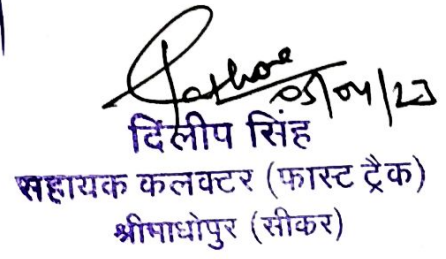 Rathore
05/04/23
दिलीप सिंह
सहायक कलक्टर (फास्ट ट्रैक)
श्रीमाधोपुर (सीकर)